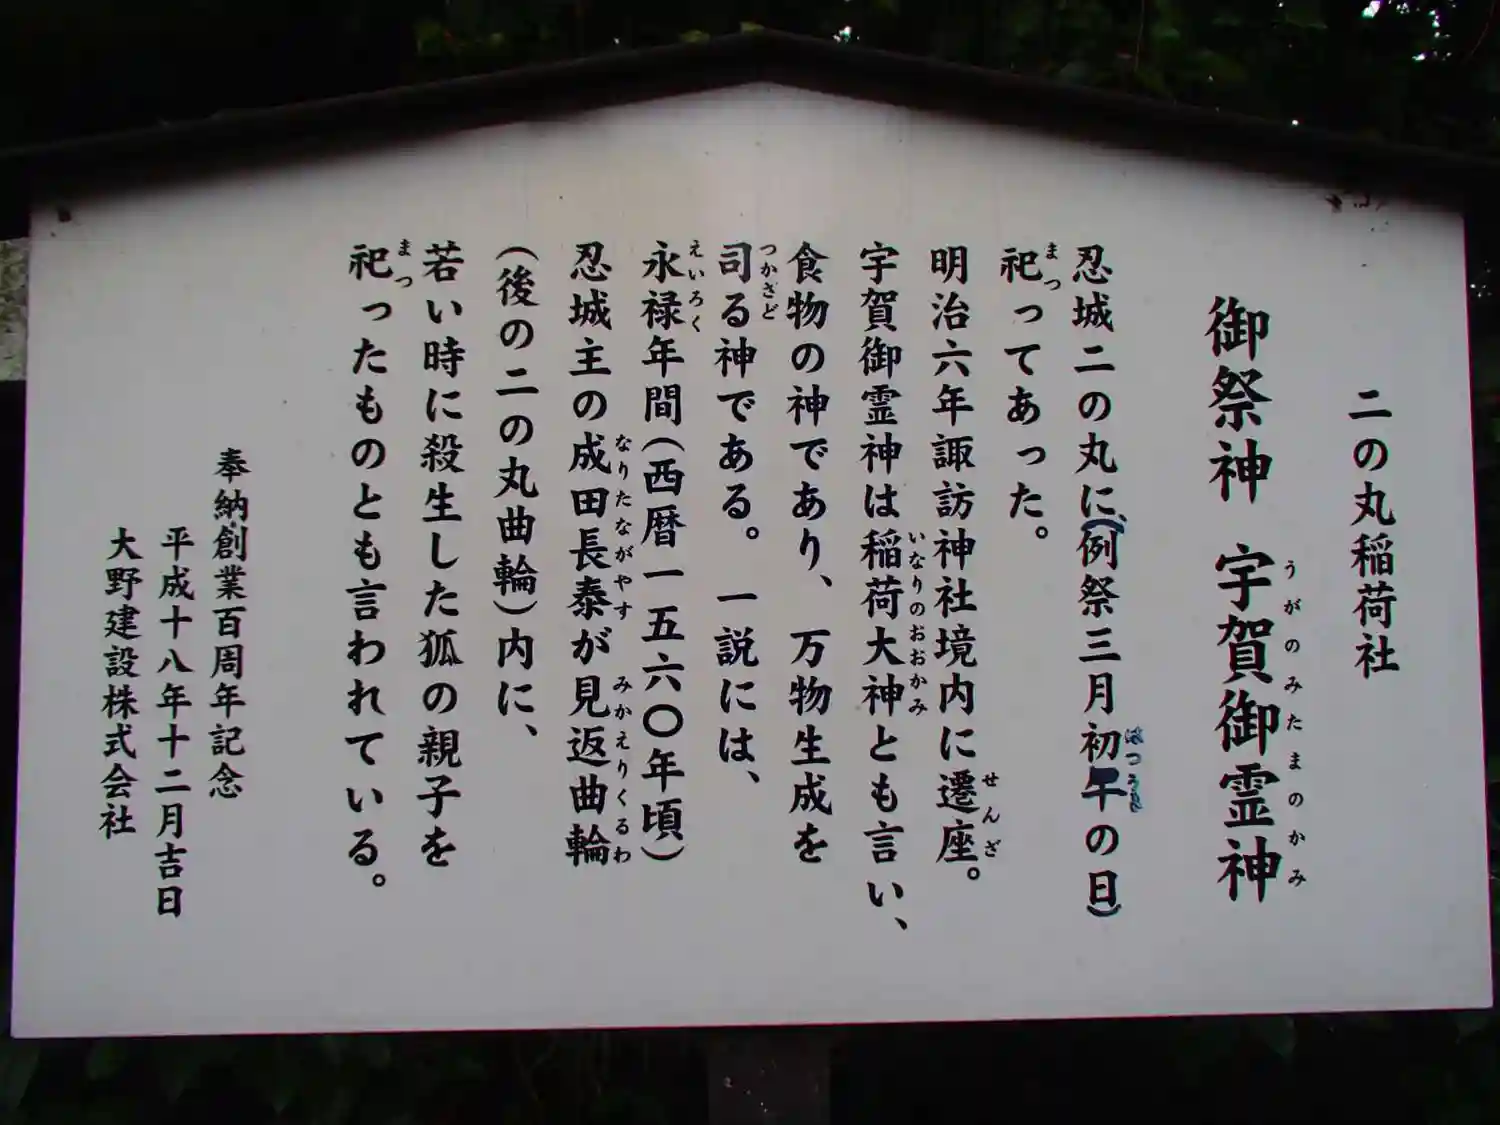 二の丸稲荷社
御祭神 宇賀御霊神
うがのみたまのかみ
忍城二の丸に、(例祭三月初午の日)
はつうま
祀ってあった。
まつ
明治六年諏訪神社境内に遷座。
せんざ
宇賀御霊神は稲荷大神とも言い、
いなりのおおかみ
食物の神であり、万物生成を
司る神である。一説には、
つかさど
永禄年間(西暦一五六〇年頃)
えいろく
忍城主の成田長泰が見返曲輪
なりたながやす みかえりくるわ
(後の二の丸曲輪)内に、
若い時に殺生した狐の親子を
祀ったものとも言われている。
まつ
奉納創業百周年記念
平成十八年十二月吉日
大野建設株式会社